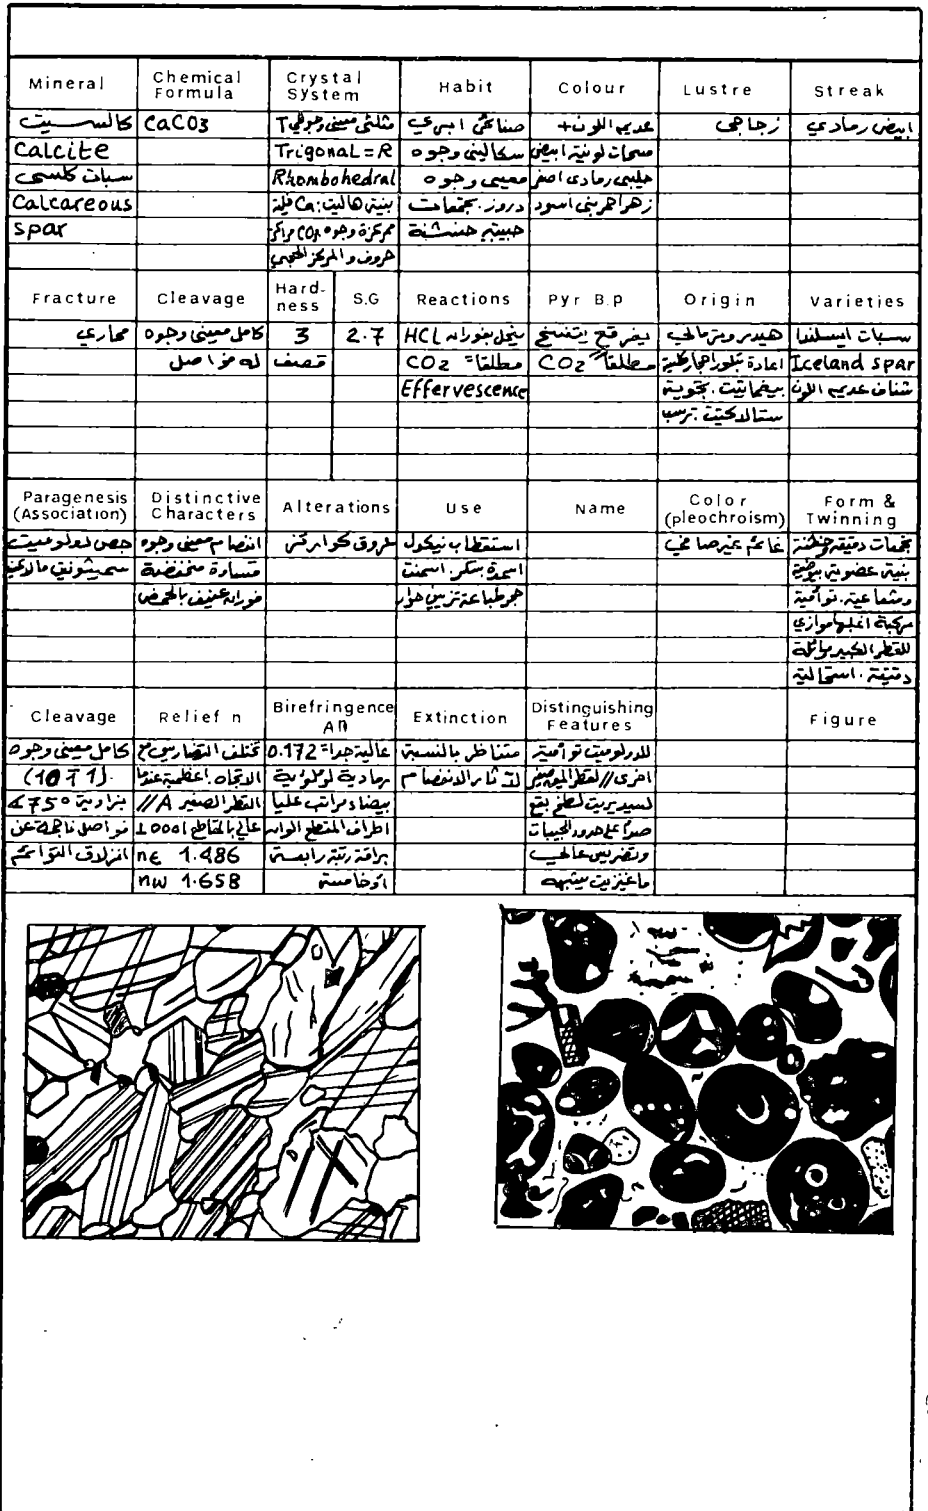 Mineral
Chemical Formula
Crystal System
Habit
Colour
Lustre
Streak
كالسيت CaCO3 مثلثي معيني وجوهي T صفائحي ابري عديم اللون+ زجاجي ابيض رمادي
Calcite Trigonal=R سكاليني وجوه مسحات لونية ابيض
سبات كلسي Rhombohedral معيني وجوه حليبي رمادي اصفر
Calcareous دروز. تجمعات زهر احمر بني اسود
spar مركزة وجوه CO3 مراكز حبيبية خشنة
حروف و المركز الحجمي
Fracture
Cleavage
Hard-ness
S.G
Reactions
Pyr B.p
Origin
Varieties
محاري كامل معيني وجوه 3 2.7 ينحل بفوران HCL يفرقع يتفسخ هيدروترمالي سبات ايسلندا
له فواصل قصف مطلقا CO2 مطلقا CO2 Iceland spar
Effervescence بيغماتيت. شفاف عديم اللون
ستالاكتيت ترسب
Paragenesis (Association)
Distinctive Characters
Alterations
Use
Name
Color (pleochroism)
Form & Twinning
جص دولوميت انفصام معيني وجوه عروق كوارتز استقطاب نيكول تجمعات دقيقة وخشنة
قساوة منخفضة اسمدة سكر. اسمنت بنية عضوية
فوران عنيف بالحمض حجر طباعة تزيين حوار
مركبة اغلبها موازي
للقطر الكبير
دقيقة.
Cleavage
Relief n
Birefringence Δn
Extinction
Distinguishing Features
Figure
كامل معيني وجوه تختلف التضاريس مع عالية جدا= 0.172 متناظر بالنسبة للدولوميت توأمية
(10T1). الاتجاه. اعظمية عندما رمادية لؤلؤية لآثار الانفصام اخرى // لقطر المعين الصغير
بزاوية 75° القطر الصغير // A بيضاء مراتب عليا لسيديريت لطخ بقع
فواصل ناجمة عن 0001 اطراف المقطع صفراء على حدود الحبيبات
انزلاق التوائم nε 1.486 براقة رتبة رابعة وتضريس عالي
nw 1.658 أو خامسة ماغنزيت يشبهه